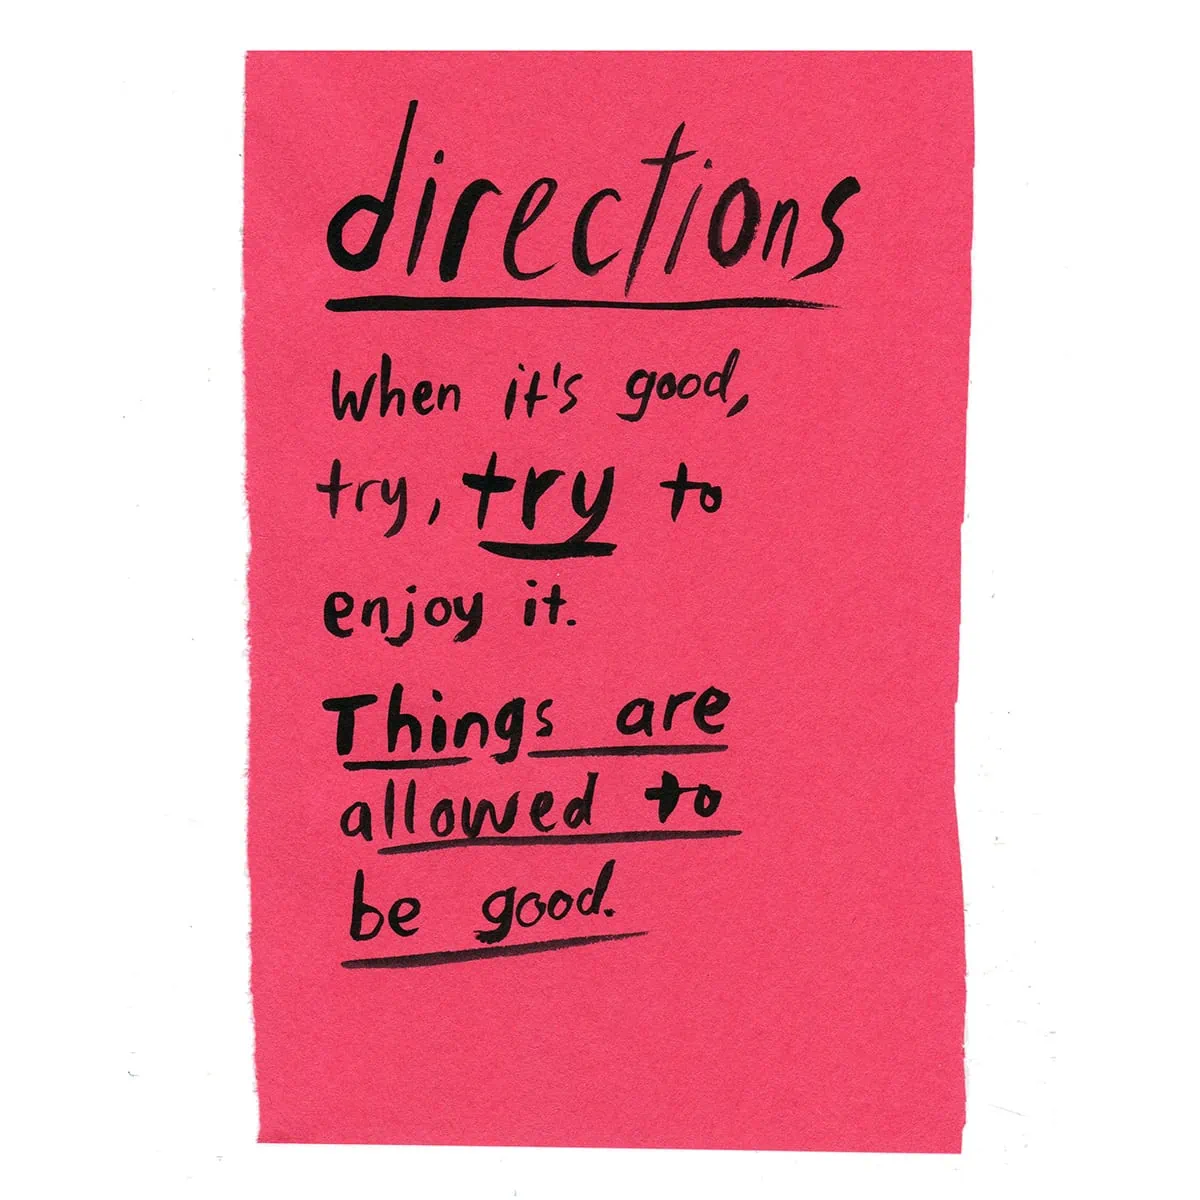 directions
When it's good,
try, try to
enjoy it.
Things are
allowed to
be good.